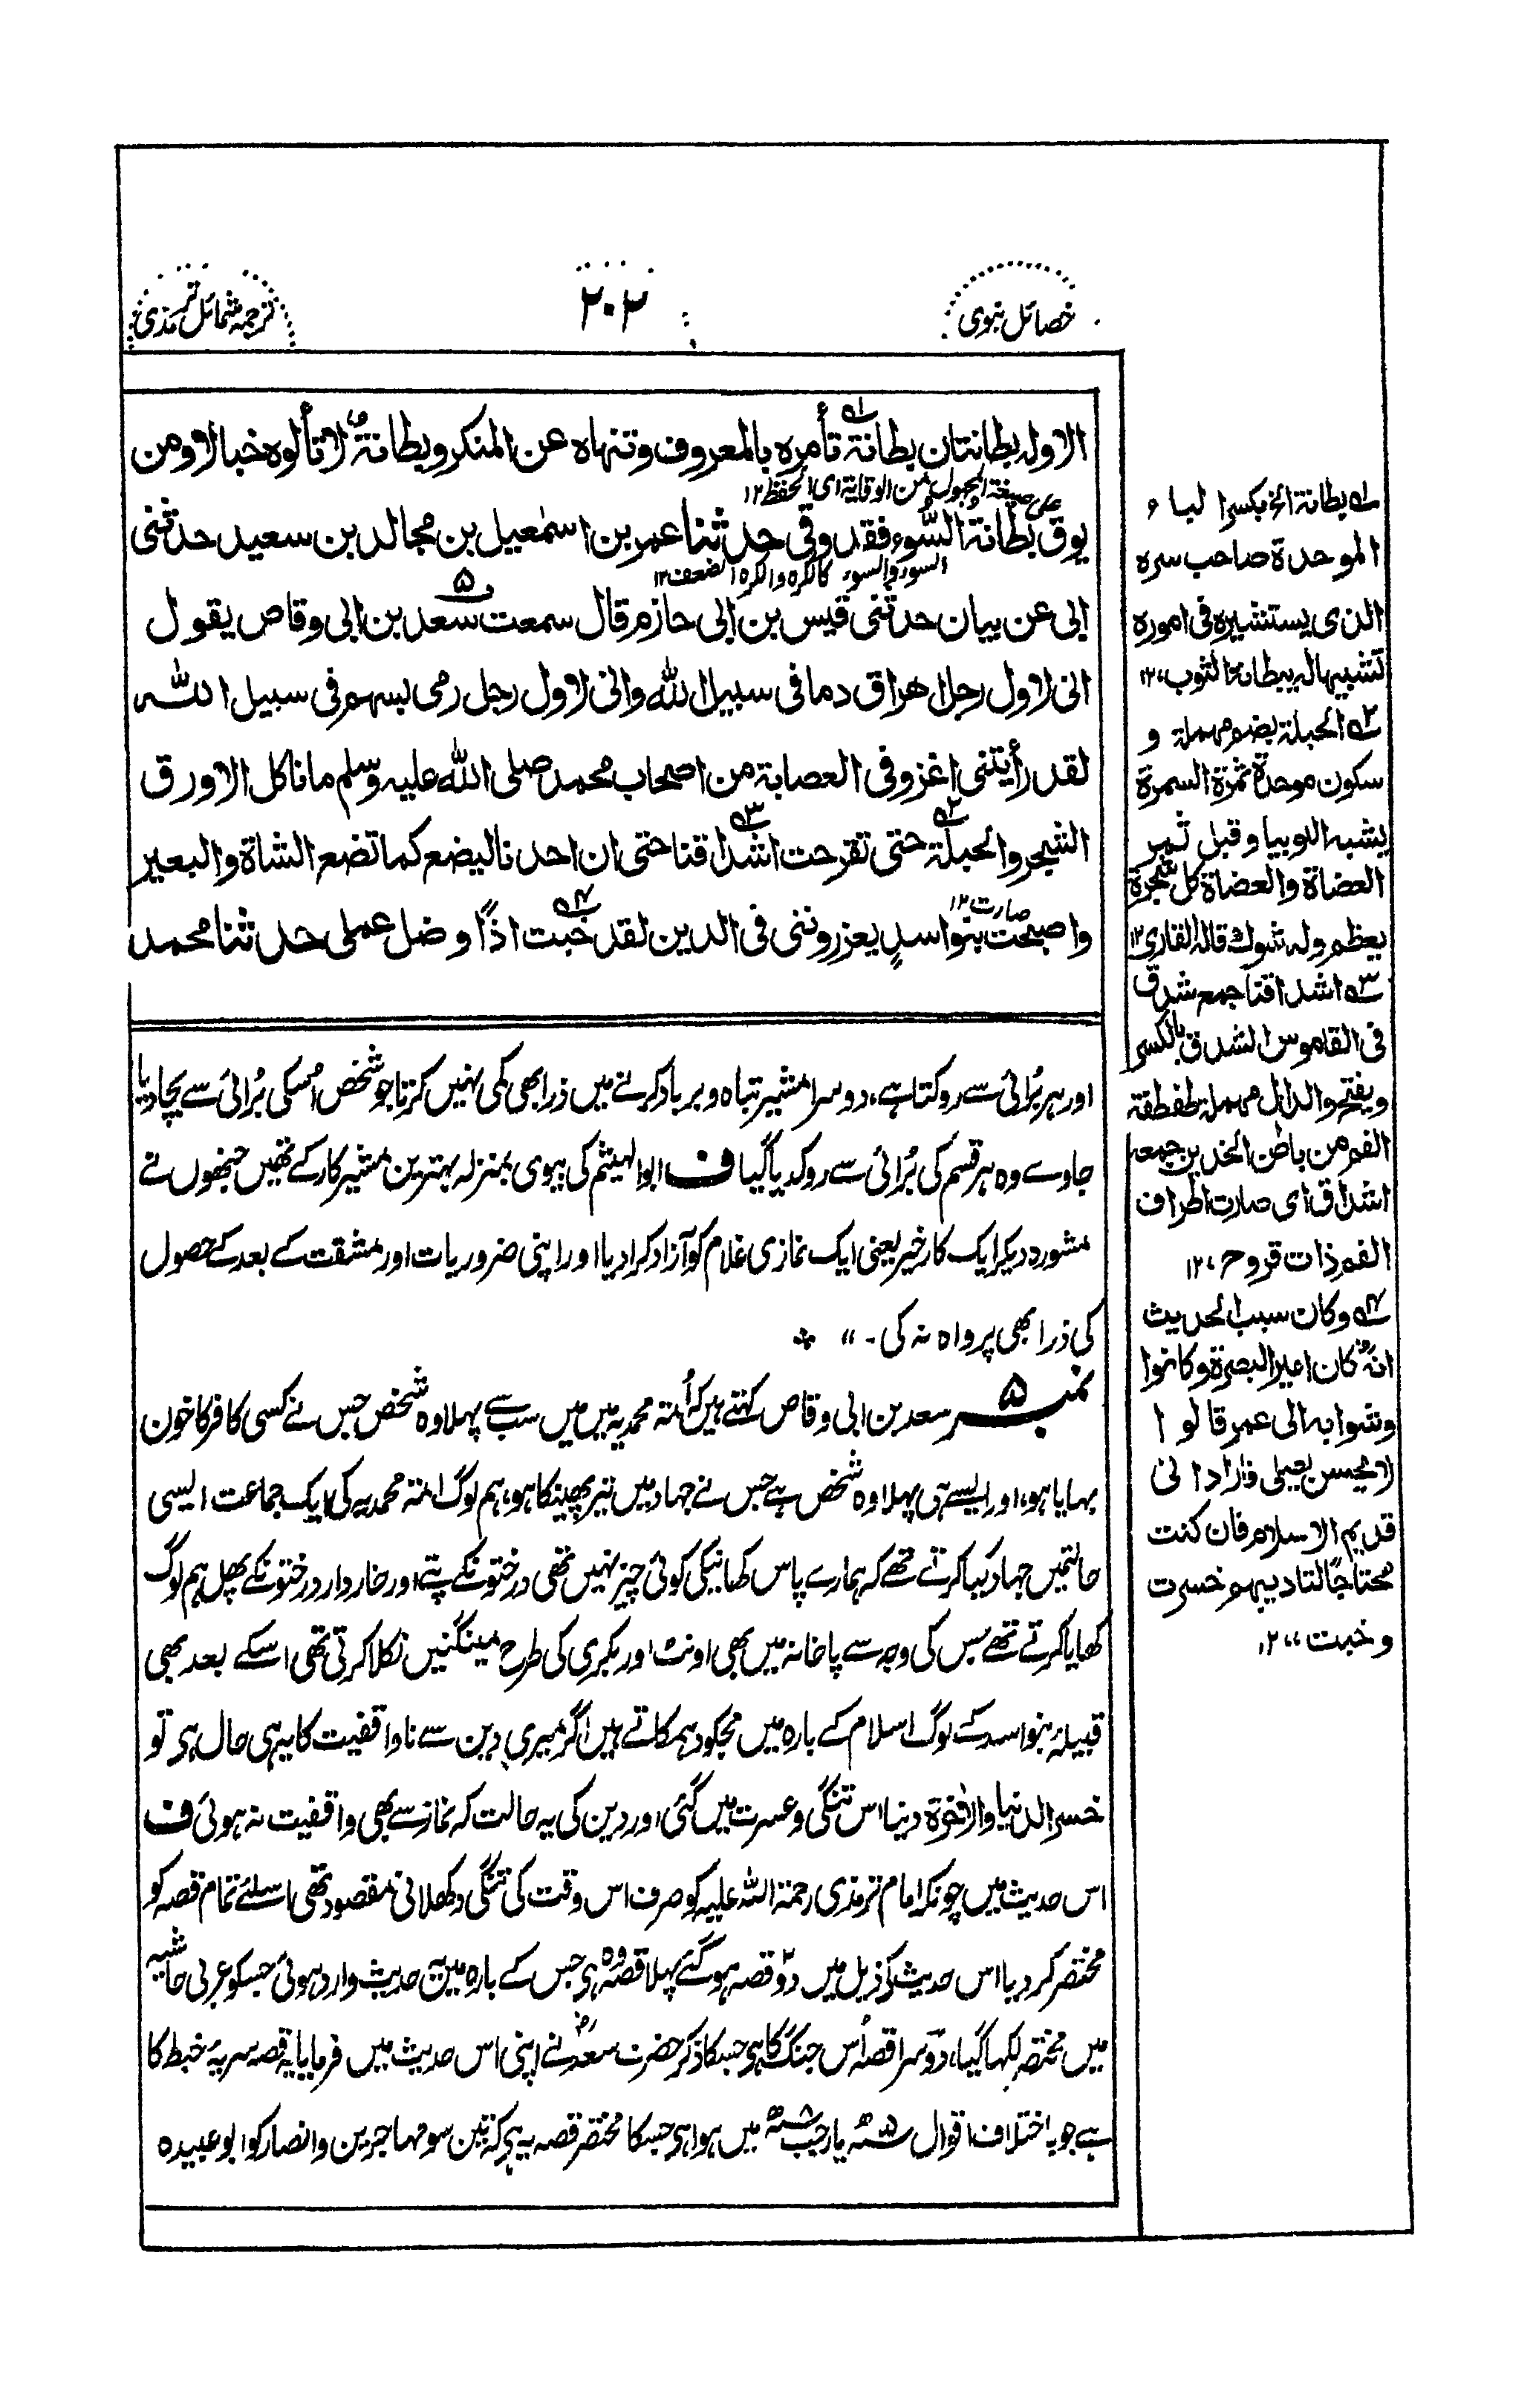 خصائل نبوی
۲۰۲
ترجمہ شمائل ترمذی
الا ولہ بطانتان بطانۃ تأمرہ بالمعروف وتنہاہ عن المنکر وبطانۃ لا تألوہ خبالا ومن
علی صیغۃ المجہول من الوقایۃ ای الحفظ ۱۲
یوق بطانۃ السُّوء فقد وقی حدثنا عمر بن اسمٰعیل بن مجالد بن سعید حدثنی
السوء والسوء کالکرہ والکرہ الضعف ۱۲
ابی عن بیان حدثنی قیس بن ابی حازم قال سمعت سعد بن ابی وقاص یقول
انی لاول رجل اھراق دما فی سبیل اللہ وانی لاول رجل رمی بسہم فی سبیل اللہ
لقد رأیتنی اغزو فی العصابۃ من اصحاب محمد صلی اللہ علیہ وسلم ما ناکل الا ورق
الشجر والحبلۃ حتی تقرحت اشداقنا حتی ان احدنا لیضع کما تضع الشاۃ والبعیر
صارت ۱۲
واصبحت بنو اسدٍ یعزروننی فی الدین لقد خبت اذًا وضل عملی حدثنا محمد
اور ہر بُرائی سے روکتا ہے، دوسرا مشیر تباہ و برباد کرنے میں ذرا بھی کمی نہیں کرتا جو شخص اُسکی بُرائی سے بچا دیا
جاوے وہ ہر قسم کی بُرائی سے روکدیا گیا ف ابو الہیثم کی بیوی بمنزلہ بہترین مشیر کار کے تھیں جنھوں نے
مشورہ دیکر ایک کار خیر یعنی ایک نمازی غلام کو آزاد کرا دیا اور اپنی ضروریات اور مشقت کے بعد کے حصول
کی ذرا بھی پرواہ نہ کی۔ ״
نمبر ۵ سعد بن ابی وقاص کہتے ہیں کہ اُمتہ محمدیہ میں میں سب سے پہلا وہ شخص جس نے کسی کافر کا خون
بہایا ہو، اور ایسے ہی پہلا وہ شخص ہے جس نے جہاد میں تیر پھینکا ہو، ہم لوگ امتہ محمدیہ کی ایک جماعت ایسی
حالتمیں جہاد کیا کرتے تھے کہ ہمارے پاس کھانیکی کوئی چیز نہیں تھی درختونکے پتے، اور خاردار درختونکے پھل ہم لوگ
کھایا کرتے تھے جس کی وجہ سے پاخانہ میں بھی اونٹ اور بکری کی طرح مینگنیں نکلا کرتی تھی اسکے بعد بھی
قبیلۂ بنو اسد کے لوگ اسلام کے بارہ میں مجکو دہمکاتے ہیں اگر میری دین سے ناواقفیت کا یہی حال ہی تو
خسر الدنیا والاٰخرۃ دنیا اس تنگی و عسرت میں گئی اور دین کی یہ حالت کہ نماز سے بھی واقفیت نہ ہوئی ف
اس حدیث میں چونکہ امام ترمذی رحمۃ اللہ علیہ کو صرف اس وقت کی تنگی دکھلانی مقصود تھی اسلئے تمام قصہ کو
مختصر کر دیا اس حدیث کے ذیل میں دو قصہ ہو گئے پہلا قصہ وہ ہی جس کے بارہ میں یہ حدیث وارد ہوئی جسکو عربی حاشیہ
میں مختصر لکہا گیا، دوسرا قصہ اُس جنگ کا ہی جسکا ذکر حضرت سعدؓ نے اپنی اس حدیث میں فرمایا یہ قصہ سریۂ خبط کا
ہے جو باختلاف اقوال ۵ھ یا رجب ۸ھ میں ہوا ہی جسکا مختصر قصہ یہ ہی کہ تین سو مہاجرین و انصار کو ابو عبیدہ
۱ بطانۃ الخ بکسر الباء
الموحدۃ صاحب سرہ
الذی یستشیرہ فی امورہ
تشبیہا لہ ببطانۃ الثوب، ۱۲
۲ الحبلۃ بضم مہملۃ و
سکون موحدۃ ثمرۃ السمرۃ
یشبہ اللوبیا وقیل ثمر
العضاۃ والعضاۃ کل شجرۃ
یعظم ولہ شوک قالہ القاری ۱۲
۳ اشداقنا جمع شدق
فی القاموس الشدق بالکسر
ویفتح والدال مہملۃ طفطفۃ
الفم من باطن الخدین جمعہ
اشداق ای صارت اطراف
الفم ذات قروح، ۱۲
۴ وکان سبب الحدیث
انہ کان امیر البصرۃ وکانوا
وشوا بہ الی عمر قالوا
لا یحسن یصلی فاراد انی
قدیم الاسلام فان کنت
محتاجًا لتادیبہم خسرت
وخبت ״ ۱۲